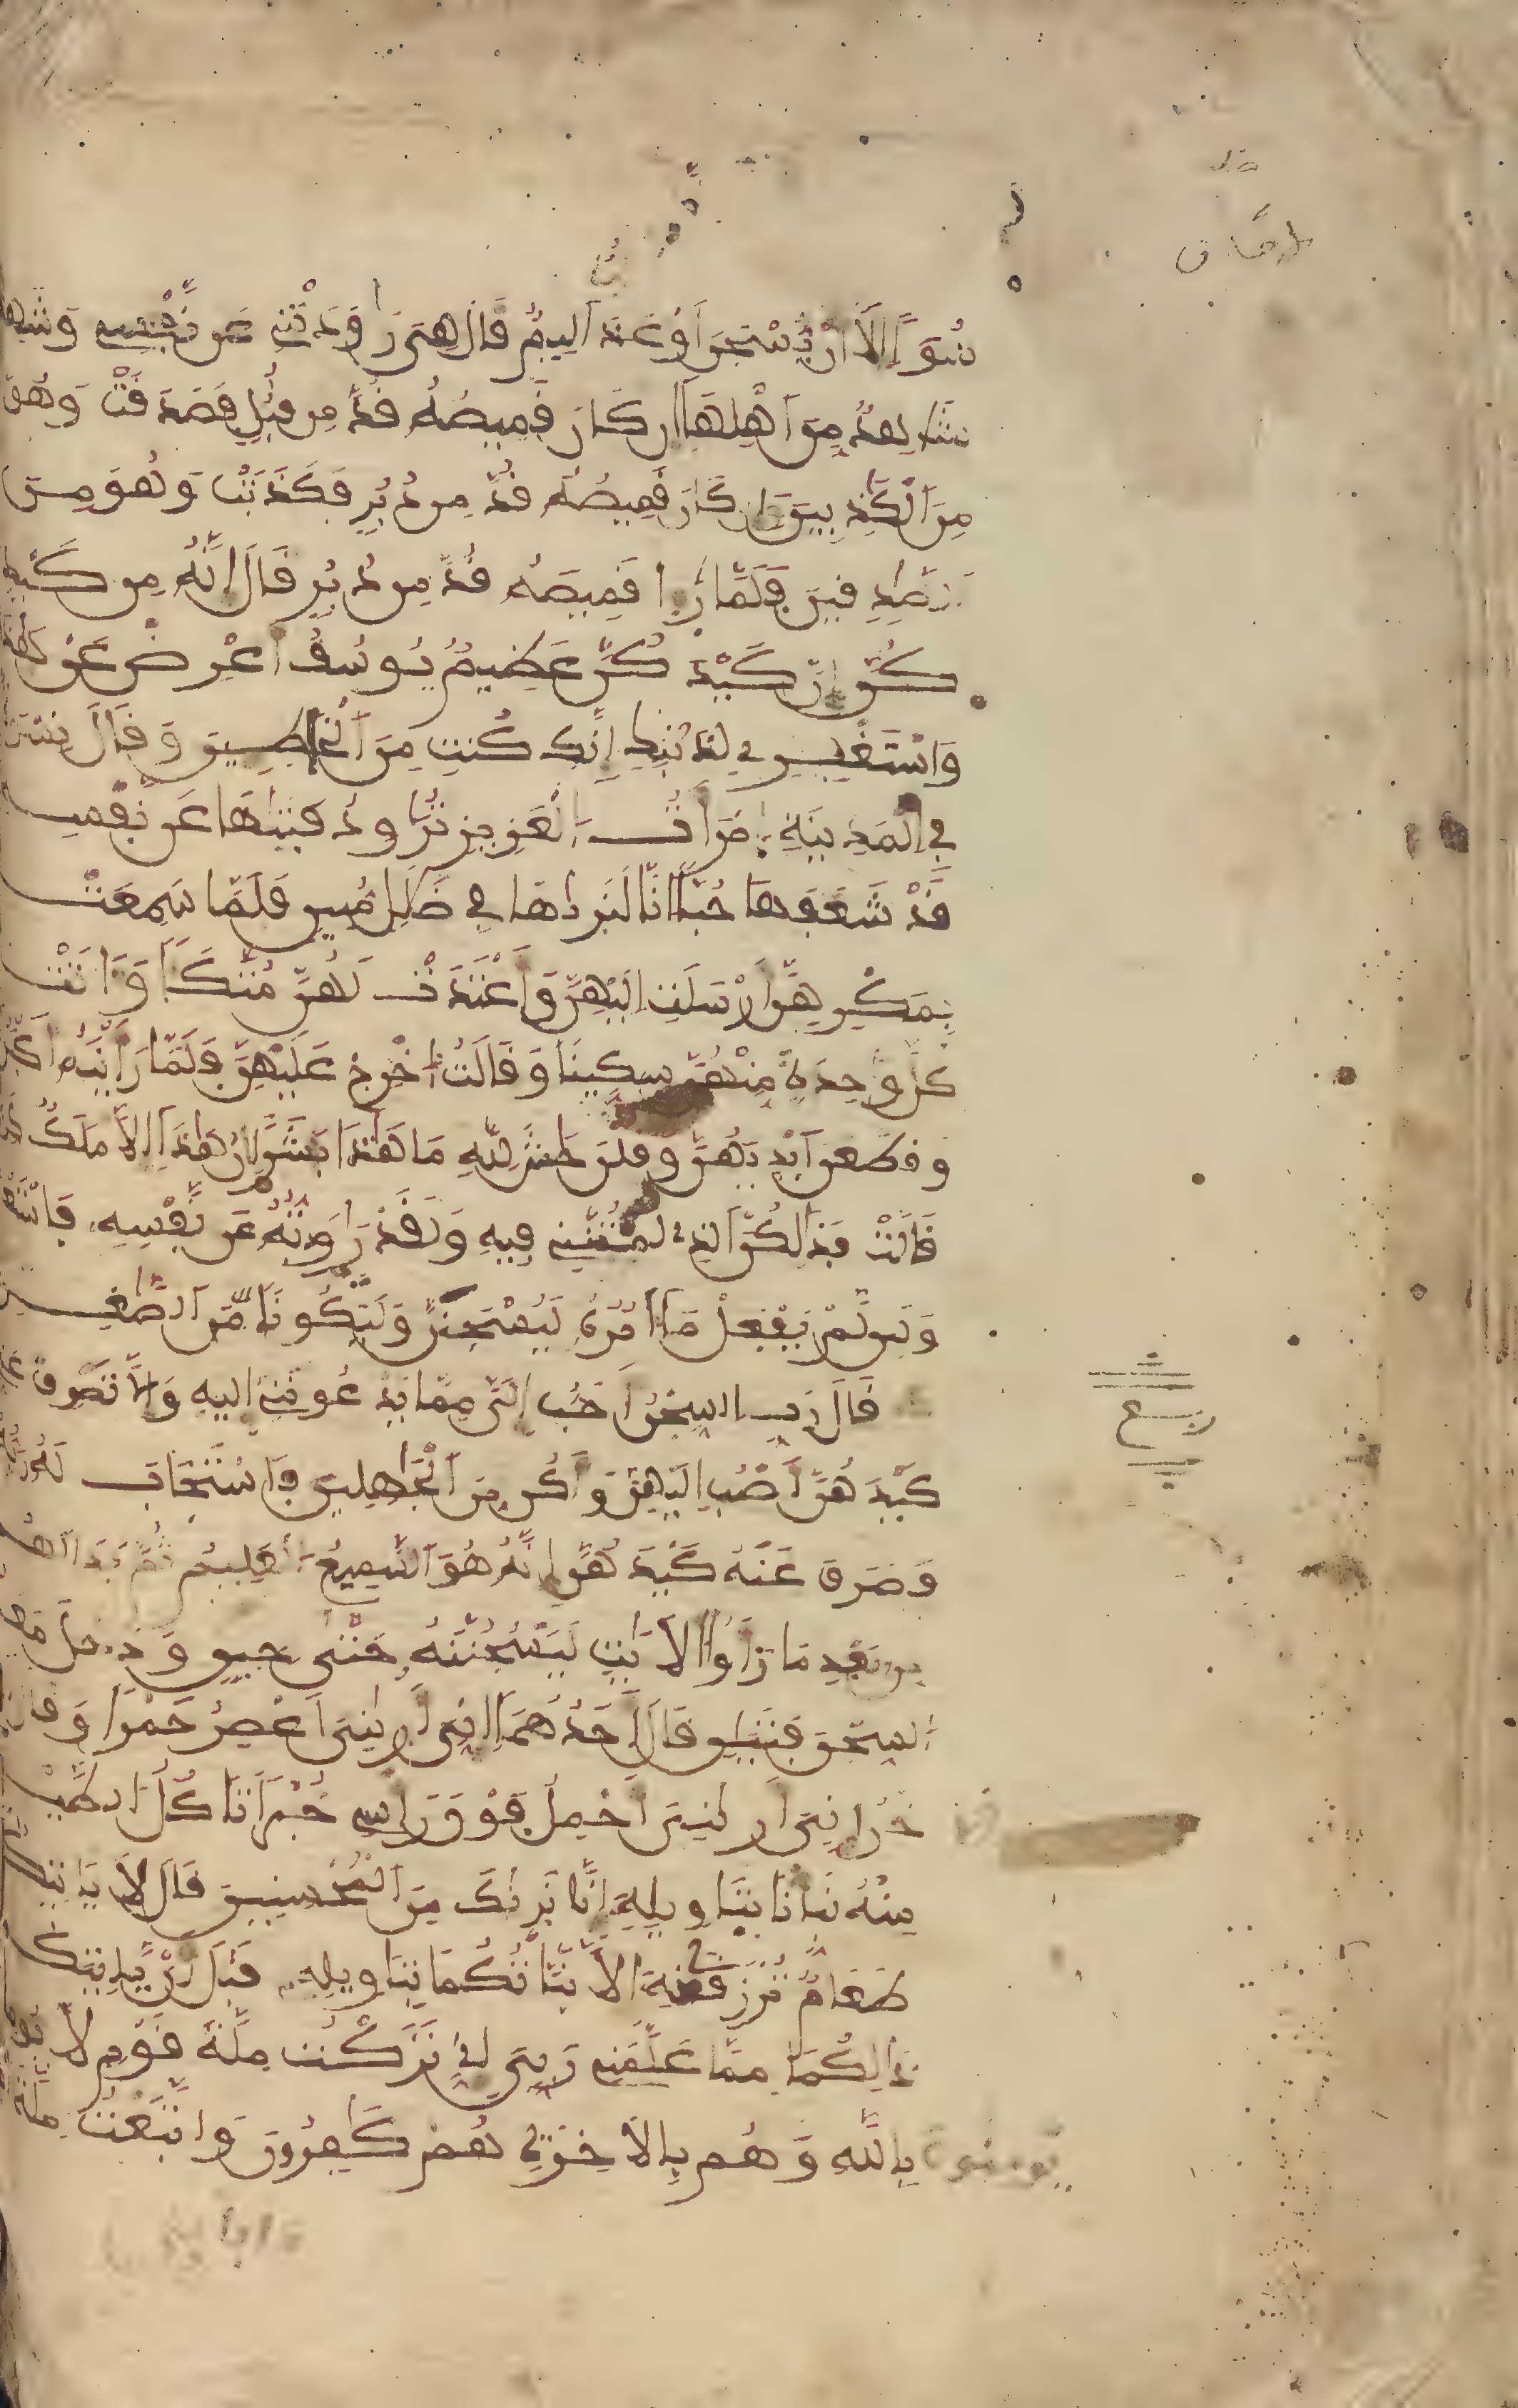 سُوٓءًا اِلَّآ أَنْ يُّسْجَنَ أَوْ عَذَابٌ اَلِيمٌ قَالَ هِىَ رَٰوَدَتْنِے عَن نَّفْسِے وَشَهِدَ
شَاهِدٌ مِّنَ اَهْلِهَآ إِن كَانَ قَمِيصُهُ قُدَّ مِن قُبُلٍ فَصَدَقَتْ وَهُوَ
مِنَ اَلْكَٰذِبِينَ وَإِن كَانَ قَمِيصُهُ قُدَّ مِن دُبُرٍ فَكَذَبَتْ وَهُوَ مِنَ
اَلصَّٰدِقِينَ فَلَمَّا رَءَا قَمِيصَهُ قُدَّ مِن دُبُرٍ قَالَ إِنَّهُ مِن كَيْدِ
كُنَّ إِنَّ كَيْدَ كُنَّ عَظِيمٌ يُوسُفُ أَعْرِضْ عَنْ هَٰذَا
وَاسْتَغْفِرِے لِذَنۢبِكِ إِنَّكِ كُنتِ مِنَ اَلْخَاطِـِٔينَ وَقَالَ نِسْوَةٌ
فِي اِلْمَدِينَةِ اِمْرَأَتُ اَلْعَزِيزِ تُرَٰوِدُ فَتَىٰهَا عَن نَّفْسِهِ
قَدْ شَغَفَهَا حُبًّا اِنَّا لَنَرَىٰهَا فِي ضَلَٰلٍ مُّبِينٍ فَلَمَّا سَمِعَتْ
بِمَكْرِهِنَّ أَرْسَلَتِ اِلَيْهِنَّ وَأَعْتَدَتْ لَهُنَّ مُتَّكَـًٔا وَءَاتَتْ
كُلَّ وَٰحِدَةٍ مِّنْهُنَّ سِكِّينًا وَقَالَتُ اُخْرُجْ عَلَيْهِنَّ فَلَمَّا رَأَيْنَهُ أَكْبَرْنَهُ
وَقَطَّعْنَ أَيْدِيَهُنَّ وَقُلْنَ حَٰشَ لِلهِ مَا هَٰذَا بَشَرًا إِنْ هَٰذَآ إِلَّا مَلَكٌ كَرِيمٌ
قَالَتْ فَذَٰلِكُنَّ اَلذِے لُمْتُنَّنِے فِيهِ وَلَقَدْ رَٰوَدتُّهُ عَن نَّفْسِهِ فَاسْتَعْصَمَ
وَلَئِن لَّمْ يَفْعَلْ مَآ ءَامُرُهُ لَيُسْجَنَنَّ وَلَيَكُونًا مِّنَ اَلصَّٰغِرِينَ
قَالَ رَبِّ اِلسِّجْنُ أَحَبُّ إِلَيَّ مِمَّا يَدْعُونَنِے إِلَيْهِ وَإِلَّا تَصْرِفْ عَنِّے
كَيْدَهُنَّ أَصْبُ إِلَيْهِنَّ وَأَكُن مِّنَ اَلْجَٰهِلِينَ فَاسْتَجَابَ لَهُ رَبُّهُ
فَصَرَفَ عَنْهُ كَيْدَهُنَّ إِنَّهُ هُوَ اَلسَّمِيعُ اَلْعَلِيمُ ثُمَّ بَدَا لَهُم
مِّن بَعْدِ مَا رَأَوُاْ اَلَايَٰتِ لَيَسْجُنُنَّهُ حَتَّىٰ حِينٍ وَدَخَلَ مَعَهُ
اَلسِّجْنَ فَتَيَٰنِ قَالَ أَحَدُهُمَآ إِنِّيَ أَرَىٰنِيَ أَعْصِرُ خَمْرًا وَقَالَ
اَلَاخَرُ إِنِّيَ أَرَىٰنِيَ أَحْمِلُ فَوْقَ رَأْسِے خُبْزًا تَاكُلُ اَلطَّيْرُ
مِنْهُ نَبِّئْنَا بِتَاوِيلِهِ إِنَّا نَرَىٰكَ مِنَ اَلْمُحْسِنِينَ قَالَ لَا يَاتِيكُمَا
طَعَامٌ تُرْزَقَٰنِهِ إِلَّا نَبَّأْتُكُمَا بِتَاوِيلِهِ قَبْلَ أَنْ يَّاتِيَكُمَا
ذَٰلِكُمَا مِمَّا عَلَّمَنِے رَبِّيَ إِنِّے تَرَكْتُ مِلَّةَ قَوْمٍ لَّا
يُومِنُونَ بِاللَّهِ وَهُم بِالَاخِرَةِ هُمْ كَٰفِرُونَ وَاتَّبَعْتُ مِلَّةَ
ءَابَآءِيَ
ربع